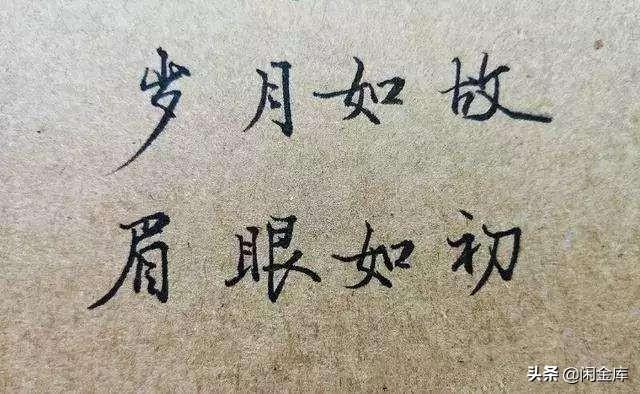 岁月如故
眉眼如初
头条 @闲金库